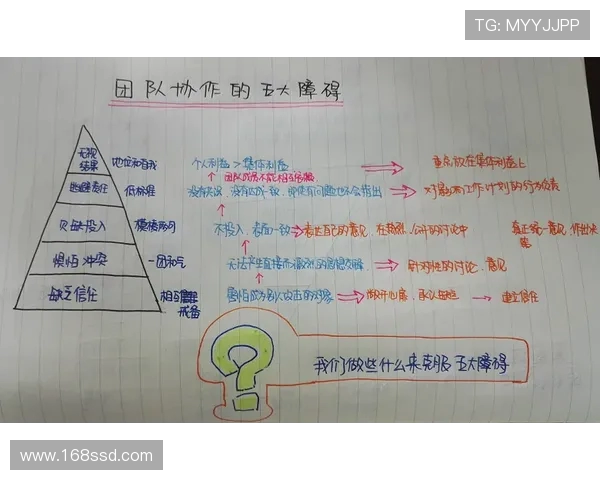 TG: MYYJJPP
团队协作的五大障碍
无视结果 地位和自我 个人利益 > 集体利益 重点放在集体利益上
团队成员不能相互
逃避责任 低标准 没有失误、没有达成一致、即使有问题也不会指出 对影响工作计划的行为负责
欠缺投入 模棱两可 不投入、表面一致 表达自己的意见、在热烈、公开的讨论中 真正统一意见,作出决策
惧怕冲突 一团和气 无法产生直接而激烈的思想交锋 针对性的讨论、意见
缺乏信任 相互戒备 害怕成为别人攻击的对象 敞开心扉、承认 建立信任
我们做些什么来克服五大障碍
www.168ssd.com